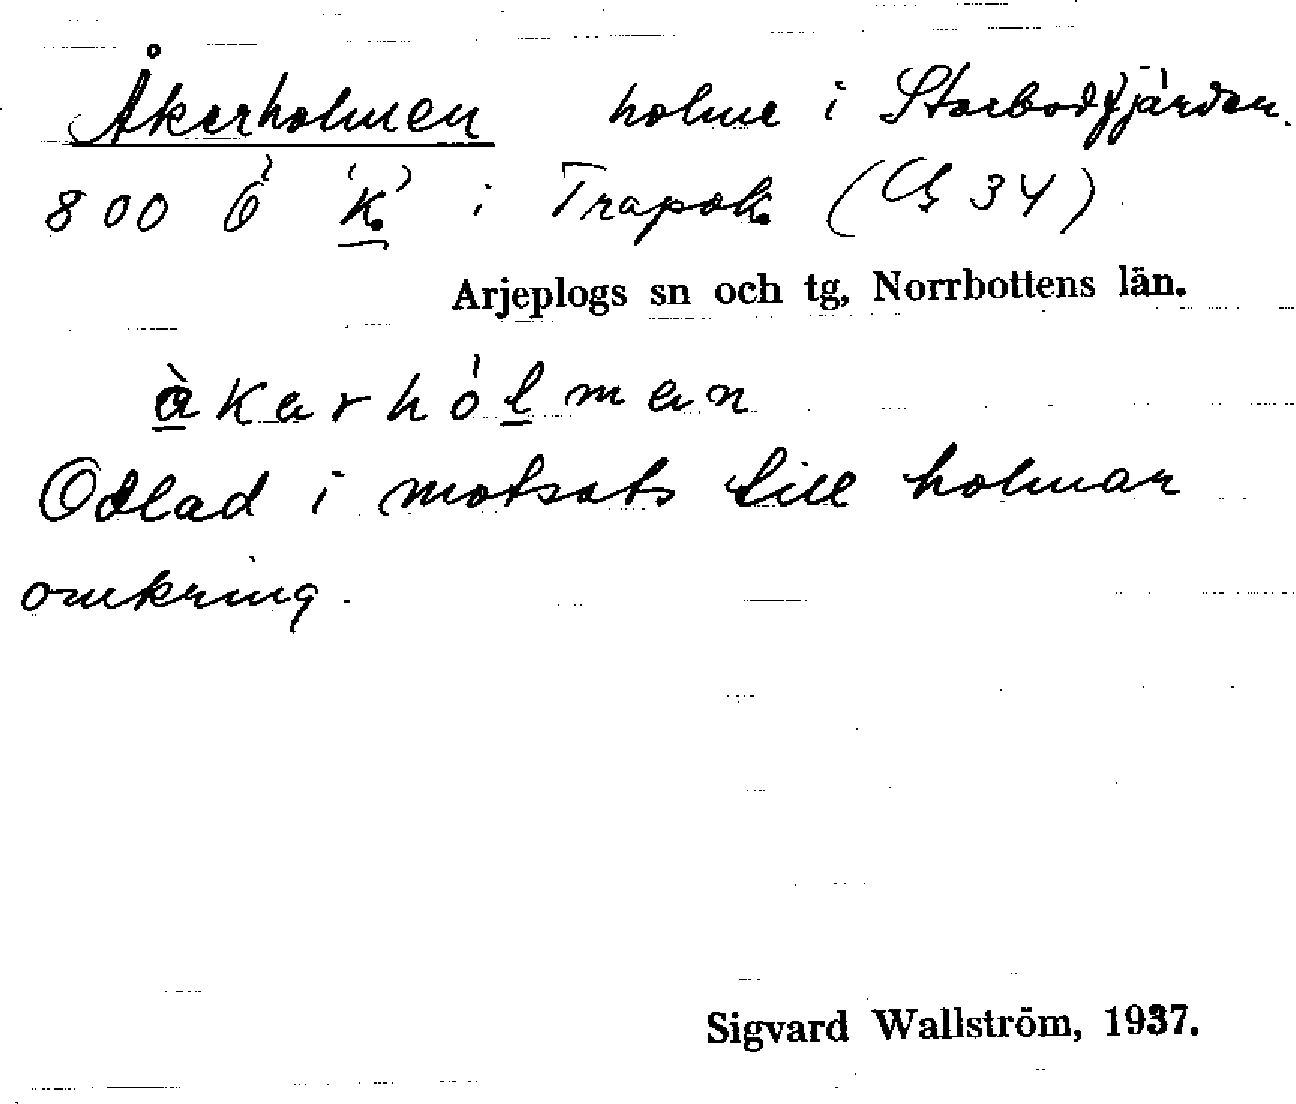 Åkerholmen holme i Storbodfjärden.
800 Ö K. i Trapok (G 34)
Arjeplogs sn och tg, Norrbottens län.
àkarhólmen
Odlad i motsats till holmar
omkring.
Sigvard Wallström, 1937.